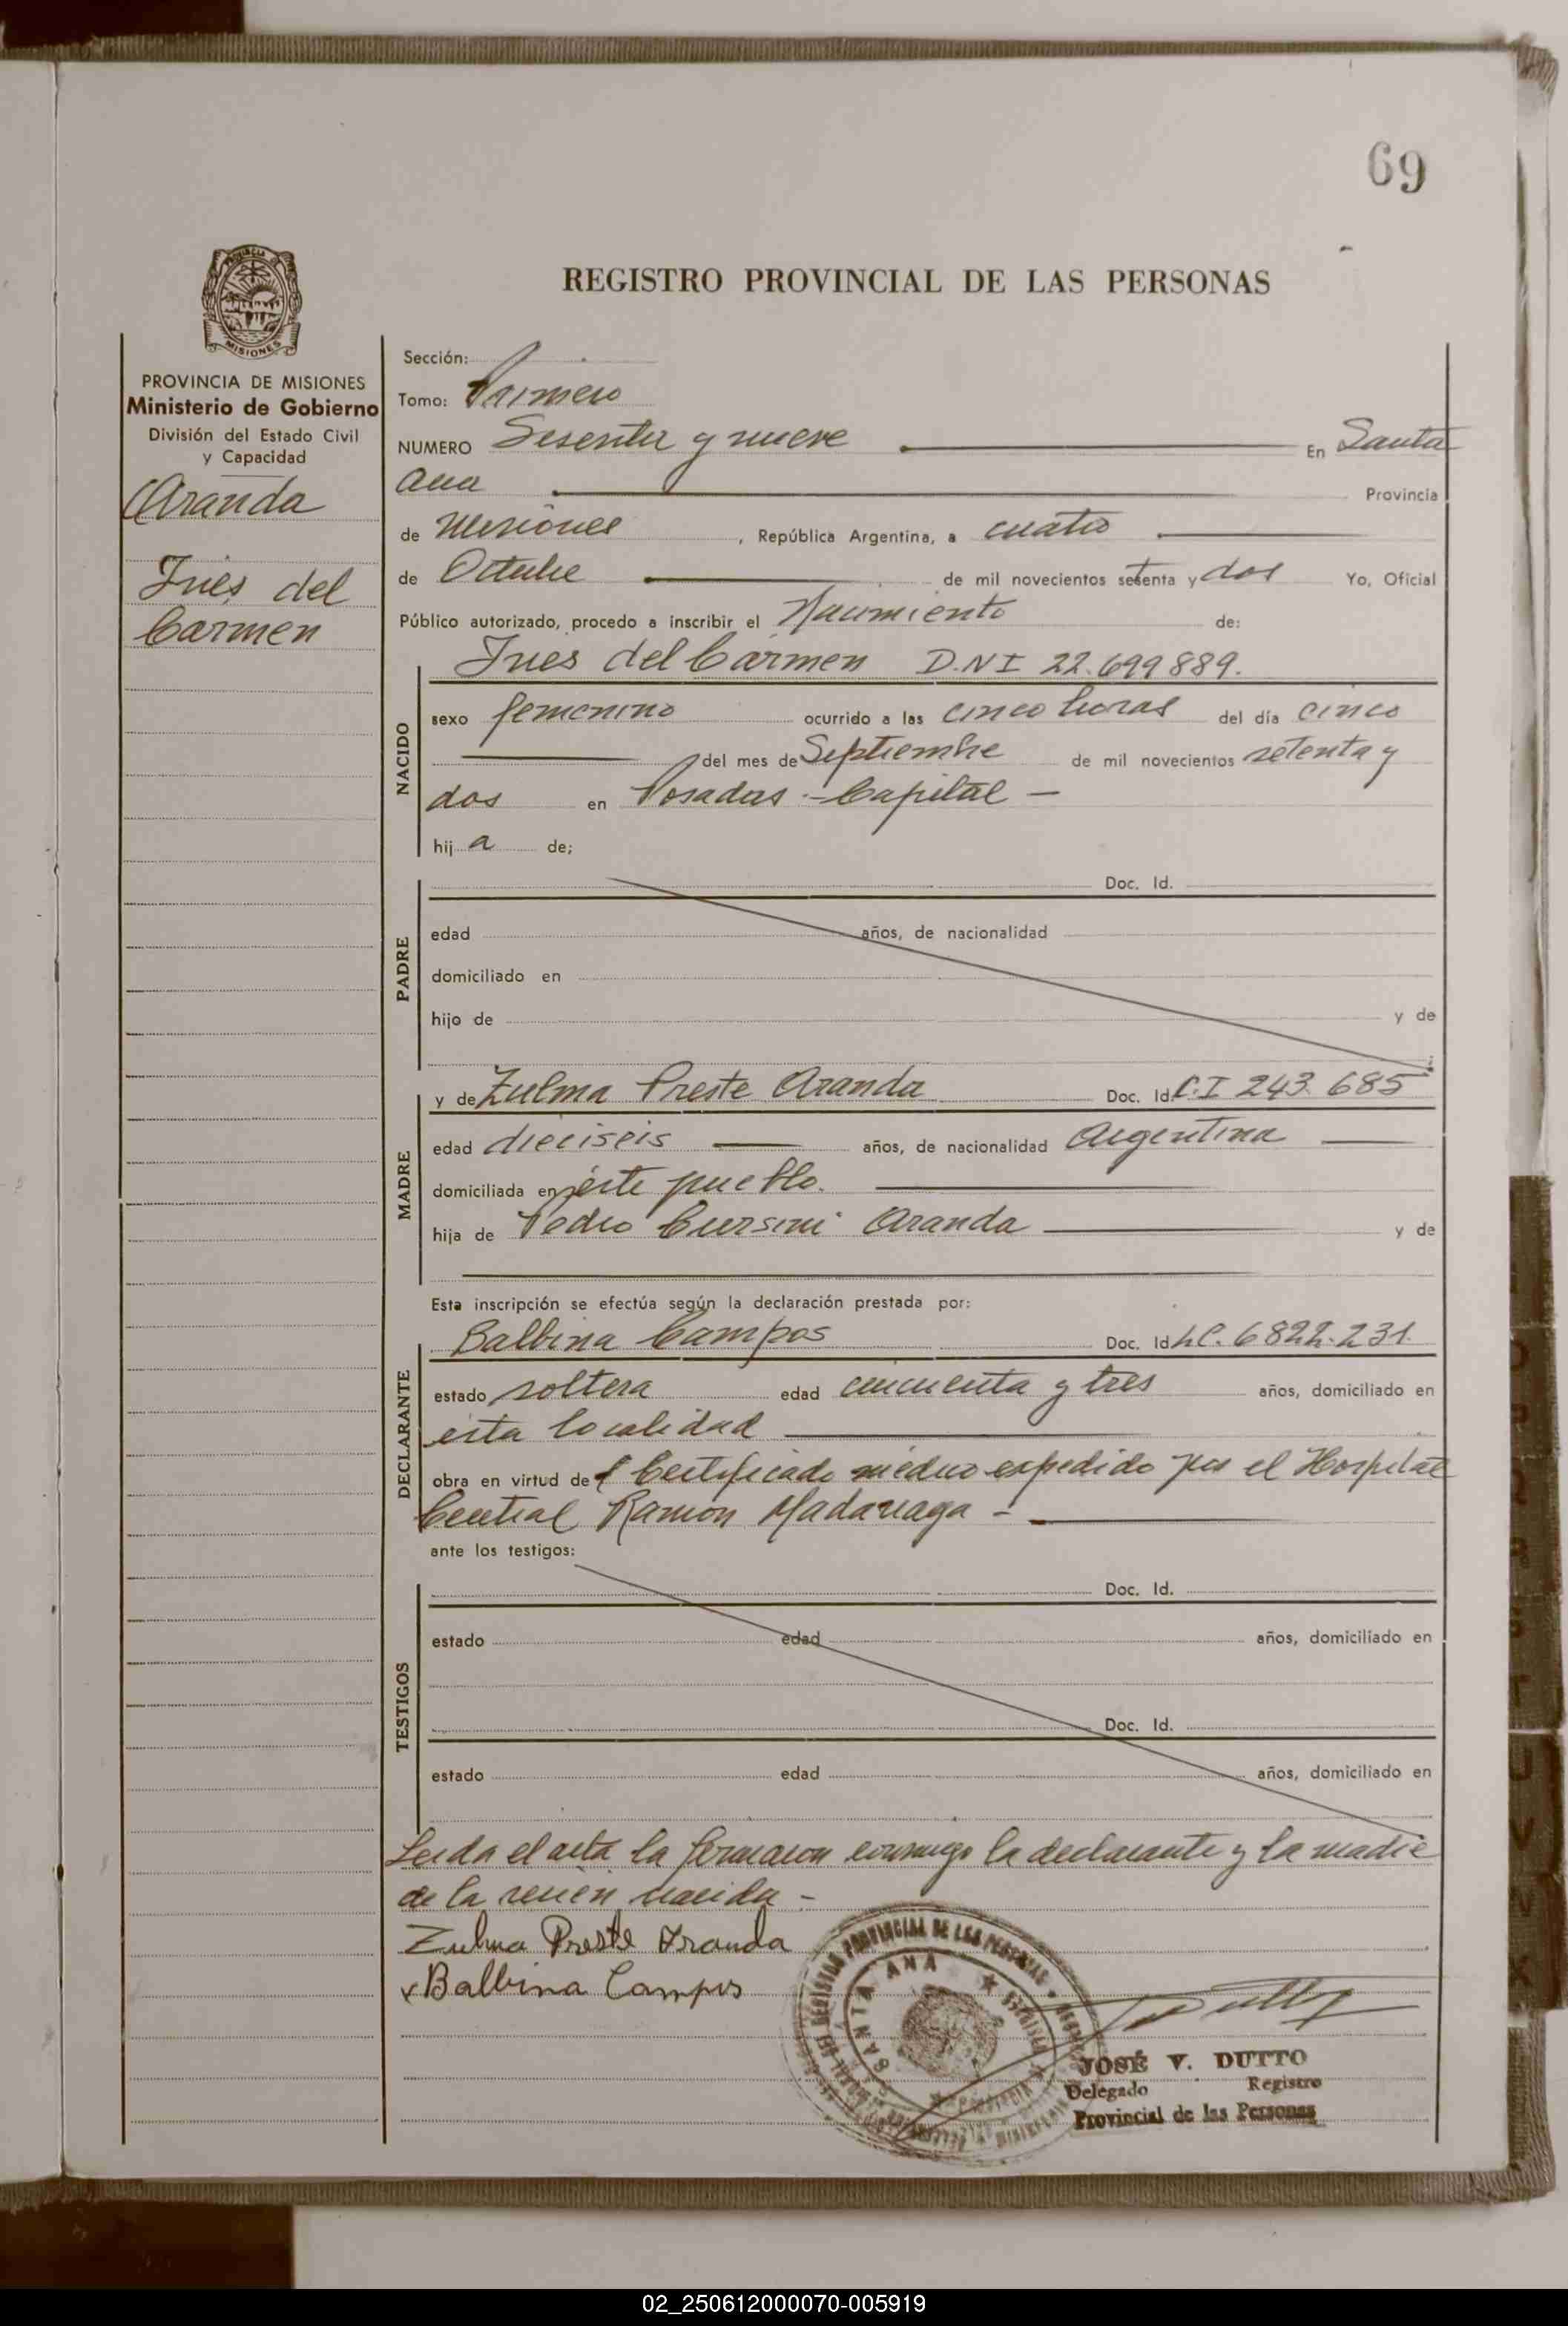 69
PROVINCIA DE
MISIONES
REGISTRO PROVINCIAL DE LAS PERSONAS
PROVINCIA DE MISIONES
Ministerio de Gobierno
División del Estado Civil
y Capacidad
Aranda
Inés del
Carmen
Sección:
Tomo: Primero
NUMERO Sesenta y nueve En Santa
Ana Provincia
de Misiones, República Argentina, a cuatro
de Octubre de mil novecientos setenta y dos Yo, Oficial
Público autorizado, procedo a inscribir el Nacimiento de:
NACIDO
Inés del Carmen D.N.I 22.699889.
sexo femenino ocurrido a las cinco horas del día cinco
del mes de Septiembre de mil novecientos setenta y
dos en Posadas - Capital -
hij a de;
PADRE
Doc. Id.
edad años, de nacionalidad
domiciliado en
hijo de y de
MADRE
y de Zulma Preste Aranda Doc. Id. C.I 243.685
edad dieciseis años, de nacionalidad Argentina
domiciliada en éste pueblo.
hija de Pedro Cursini Aranda y de
Esta inscripción se efectúa según la declaración prestada por:
DECLARANTE
Balbina Campos Doc. Id L.C. 6822.231.
estado soltera edad cincuenta y tres años, domiciliado en
esta localidad
obra en virtud de Certificado médico expedido por el Hospital
Central Ramón Madariaga -
ante los testigos:
TESTIGOS
Doc. Id.
estado edad años, domiciliado en
Doc. Id.
estado edad años, domiciliado en
Leida el acta la firmaron conmigo la declarante y la madre
de la recién nacida -
Zulma Preste Aranda
x Balbina Campos
REGISTRO PROVINCIAL DE LAS PERSONAS
SANTA ANA
JOSÉ V. DUTTO
Delegado Registro
Provincial de las Personas
02_250612000070-005919